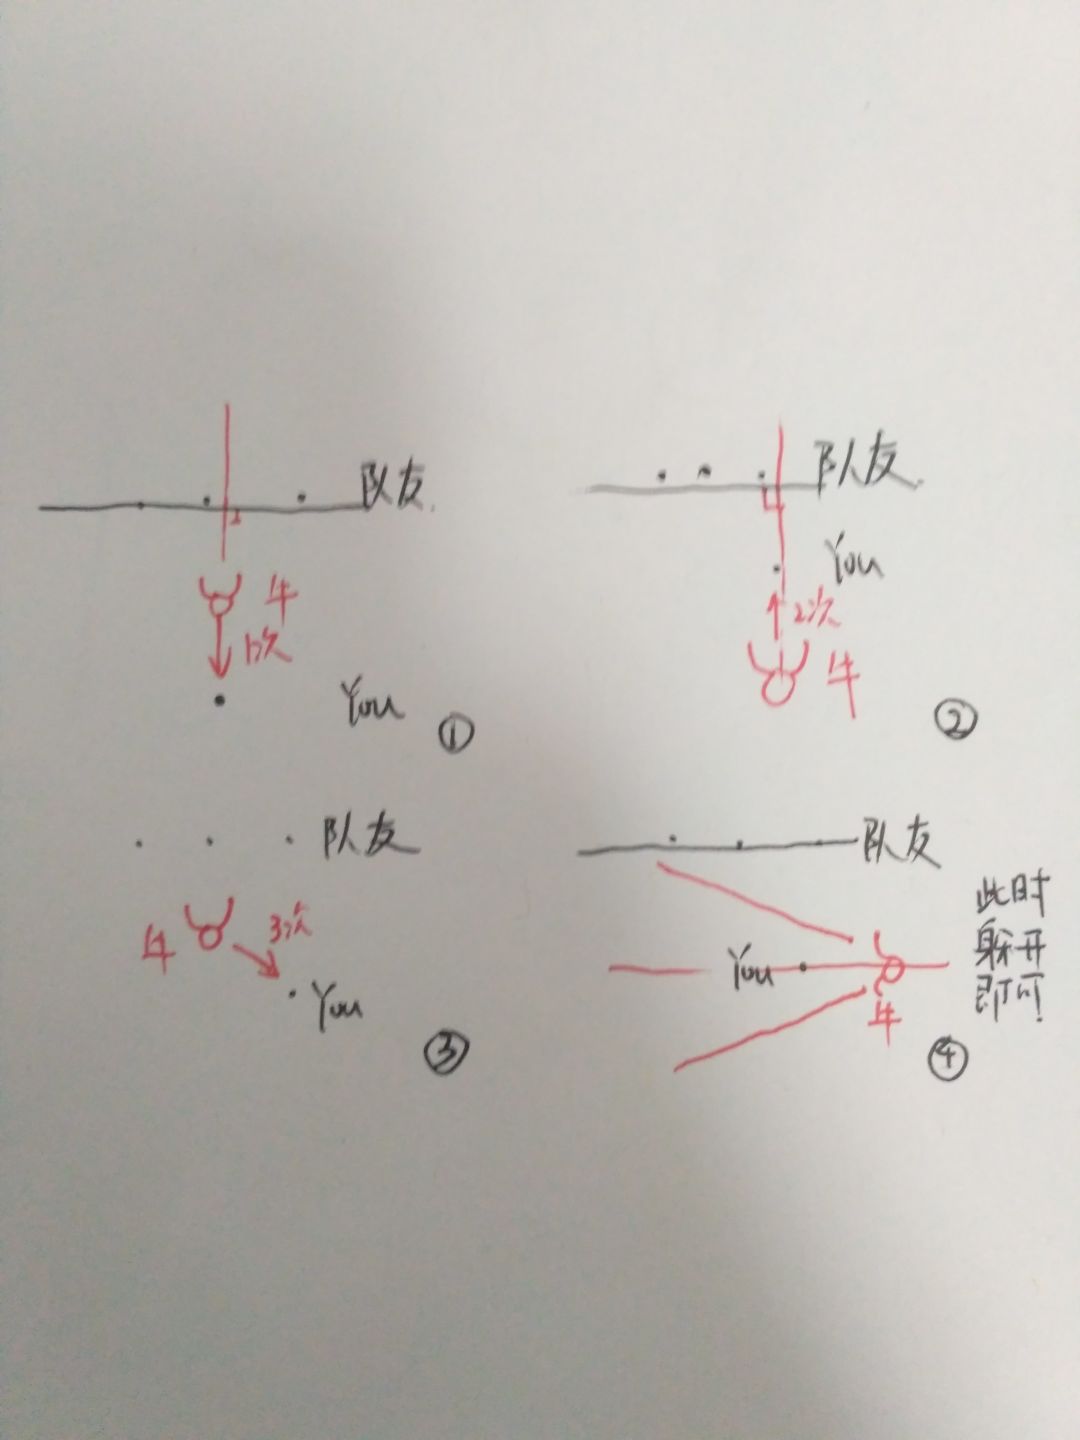 队友.
牛
1次
You
①
队友
You
2次
牛
②
队友
牛
3次
You
③
队友
You
牛
此时
躲开
即可!
④